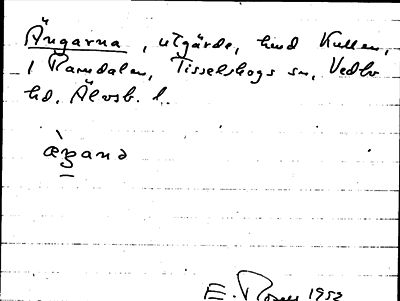 Ängarna, utgärde, hmd Kullen,
i Ramdalen, Tisselskogs sn, Vedbo
hd, Älvsb. l.
æ̀ŋand
E. Rosell 1952